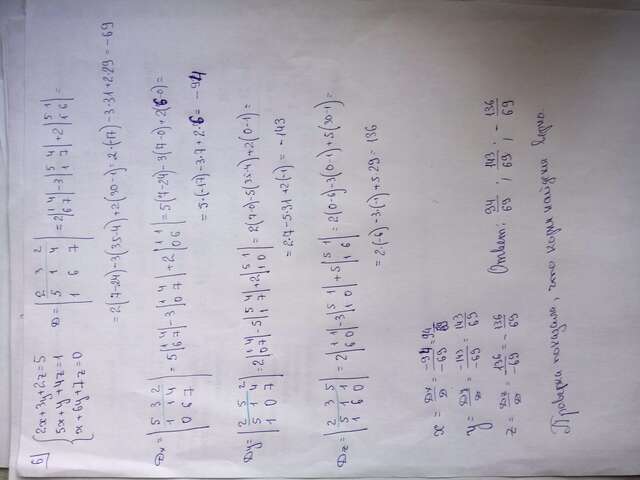 б)
{2x+3y+2z=5
5x+y+4z=1
x+6y+7z=0
D = |2 3 2; 5 1 4; 1 6 7| = 2|1 4; 6 7| - 3|5 4; 1 7| + 2|5 1; 1 6| =
= 2(7-24)-3(35-4)+2(30-1) = 2·(-17)-3·31+2·29 = -69
Dx = |5 3 2; 1 1 4; 0 6 7| = 5|1 4; 6 7| - 3|1 4; 0 7| + 2|1 1; 0 6| = 5(7-24)-3(7-0)+2(6-0) =
= 5·(-17)-3·7+2·6 = -94
Dy = |2 5 2; 5 1 4; 1 0 7| = 2|1 4; 0 7| - 5|5 4; 1 7| + 2|5 1; 1 0| = 2(7-0)-5(35-4)+2(0-1) =
= 2·7-5·31+2(-1) = -143
Dz = |2 3 5; 5 1 1; 1 6 0| = 2|1 1; 6 0| - 3|5 1; 1 0| + 5|5 1; 1 6| = 2(0-6)-3(0-1)+5(30-1) =
= 2·(-6)-3·(-1)+5·29 = 136
x = Dx/D = -94/-69 = 94/69
y = Dy/D = -143/-69 = 143/69
z = Dz/D = 136/-69 = -136/69
Ответ: 94/69; 143/69; -136/69
Проверка показала, что корни найдены верно